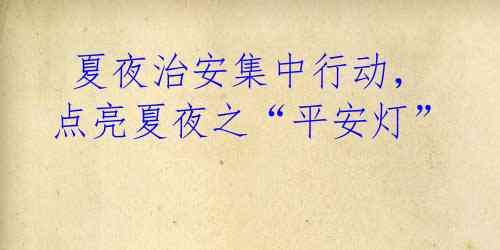 夏夜治安集中行动，
点亮夏夜之“平安灯”